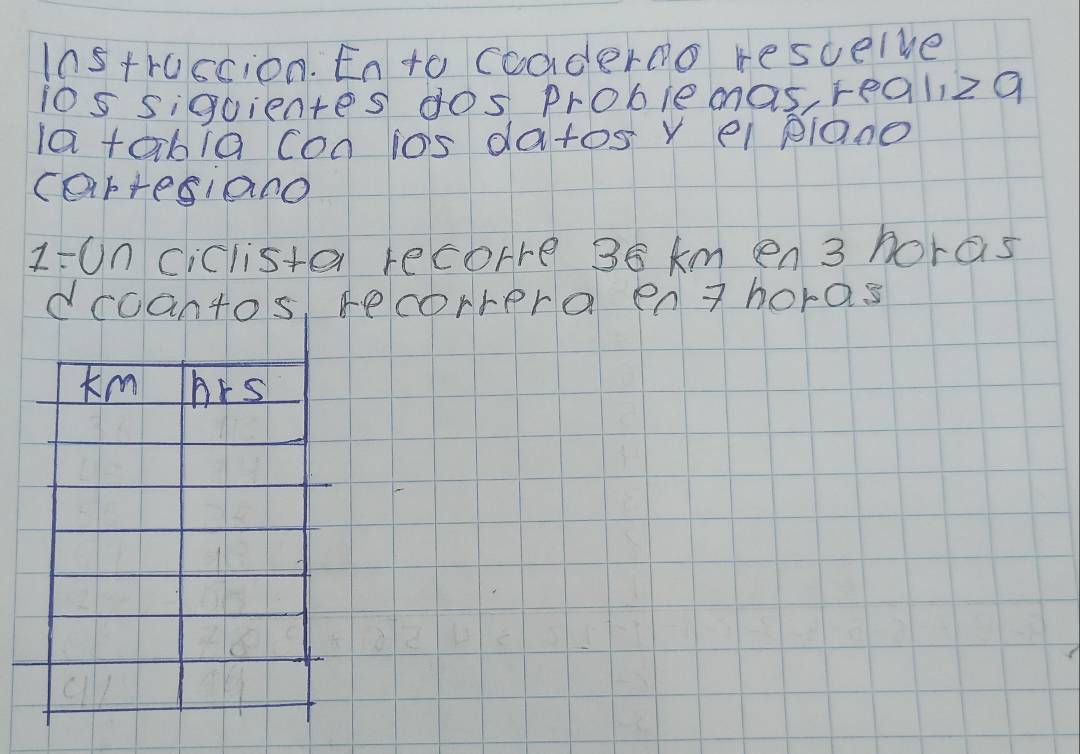 Instruccion. En tu cuaderno resuelve
los siguientes dos problemas, realiza
la tabla con los datos y el plano
cartesiano
1=Un ciclista recorre 36 km en 3 horas
d cuantos recorrera en 7 horas
km hrs